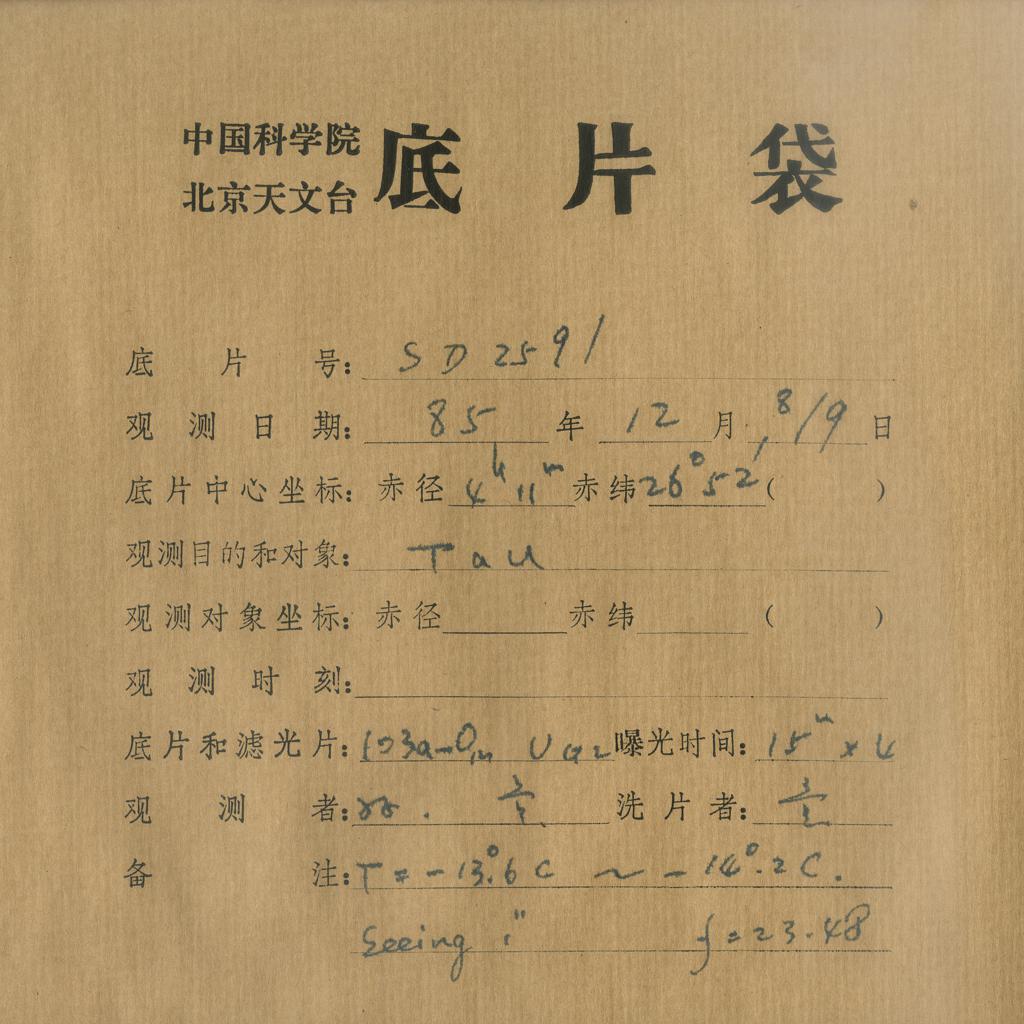 中国科学院
北京天文台
底片袋
底片号: SD2591
观测日期: 85年12月8/9日
底片中心坐标: 赤径 4h11m 赤纬 26°52′ ( )
观测目的和对象: Tau
观测对象坐标: 赤径 赤纬 ( )
观测时刻:
底片和滤光片: 103a-O, UG2 曝光时间: 15m×4
观测者: 洗片者:
备注: T=-13°.6C ~ -14°.2C.
Seeing 1″ f=23.48